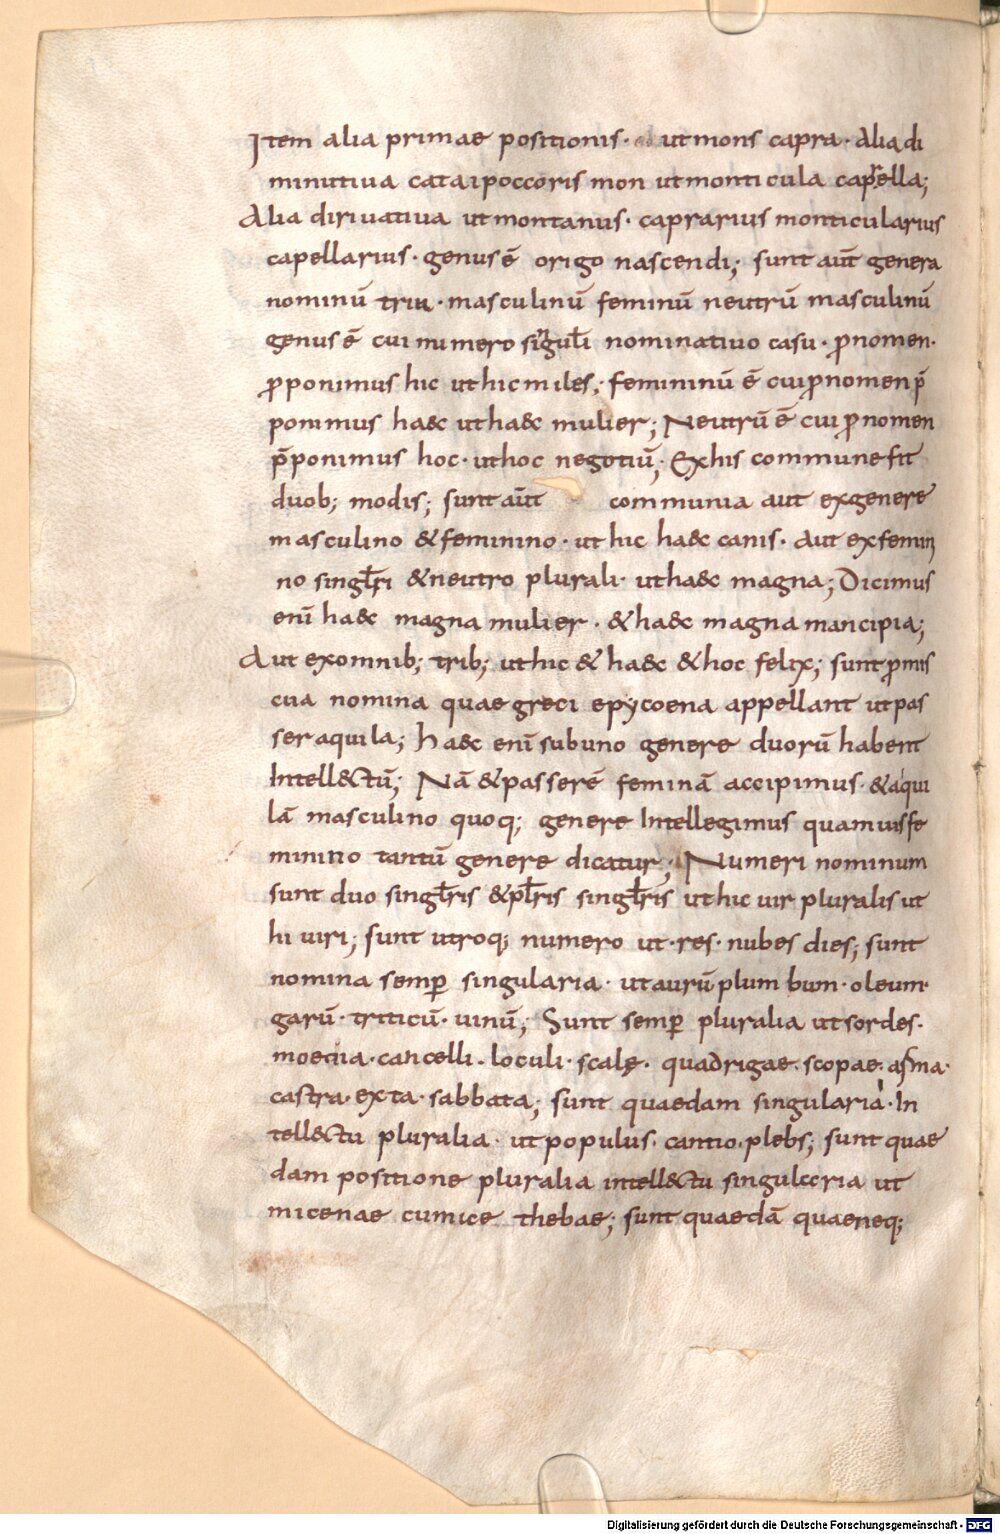 Item alia primae positionis· ut mons capra· Alia di
minutiua cata ipoccoris mon ut monticula capsella;
Alia diriuatiua ut montanus· caprarius monticularius
capellarius· genus ē origo nascendi; sunt aūt genera
nominū tria· masculinū feminū neutrū masculinū
genus ē cui numero singułi nominatiuo casu· ꝓnomen·
ꝓponimus hic ut hic miles; femininū ē cui ꝓnomen p̄
ponimus haec ut haec mulier; Neutrū ē cui ꝓnomen
p̄ponimus hoc· ut hoc negotiū; Ex his commune fit
duob; modis; sunt aūt communia aut ex genere
masculino & feminino· ut hic haec canis· Aut ex femini
no singłri & neutro plurali· ut haec magna; Dicimus
enī haec magna mulier· & haec magna mancipia;
Aut ex omnib; trib; ut hic & haec & hoc felix; sunt ꝓmis
cua nomina quae greci epycoena appellant ut pas
ser aquila; haec enī sub uno genere duorū habent
Intell&ctū; Nā & passerē feminā accipimus· & aqui
lā masculino quoq; genere Intellegimus quamuis fe
minino tantū genere dicatur; Numeri nominum
sunt duo singłris & płris singłris ut hic uir pluralis ut
hi uiri; sunt utroq; numero ut· res· nubes dies; sunt
nomina semꝑ singularia· ut aurū plumbum· oleum·
garū· triticū· uinū; Sunt semꝑ pluralia ut sordes·
moenia· cancelli· loculi· scalę· quadrigae· scopae· arma·
castra· exta· sabbata; sunt quaedam singularia· In
tell&ctu pluralia· ut populus· cantio· plebs; sunt quae
dam positione pluralia intell&ctu singularia ut
micenae cumice thebae; sunt quaedā quae neq;
Digitalisierung gefördert durch die Deutsche Forschungsgemeinschaft - DFG